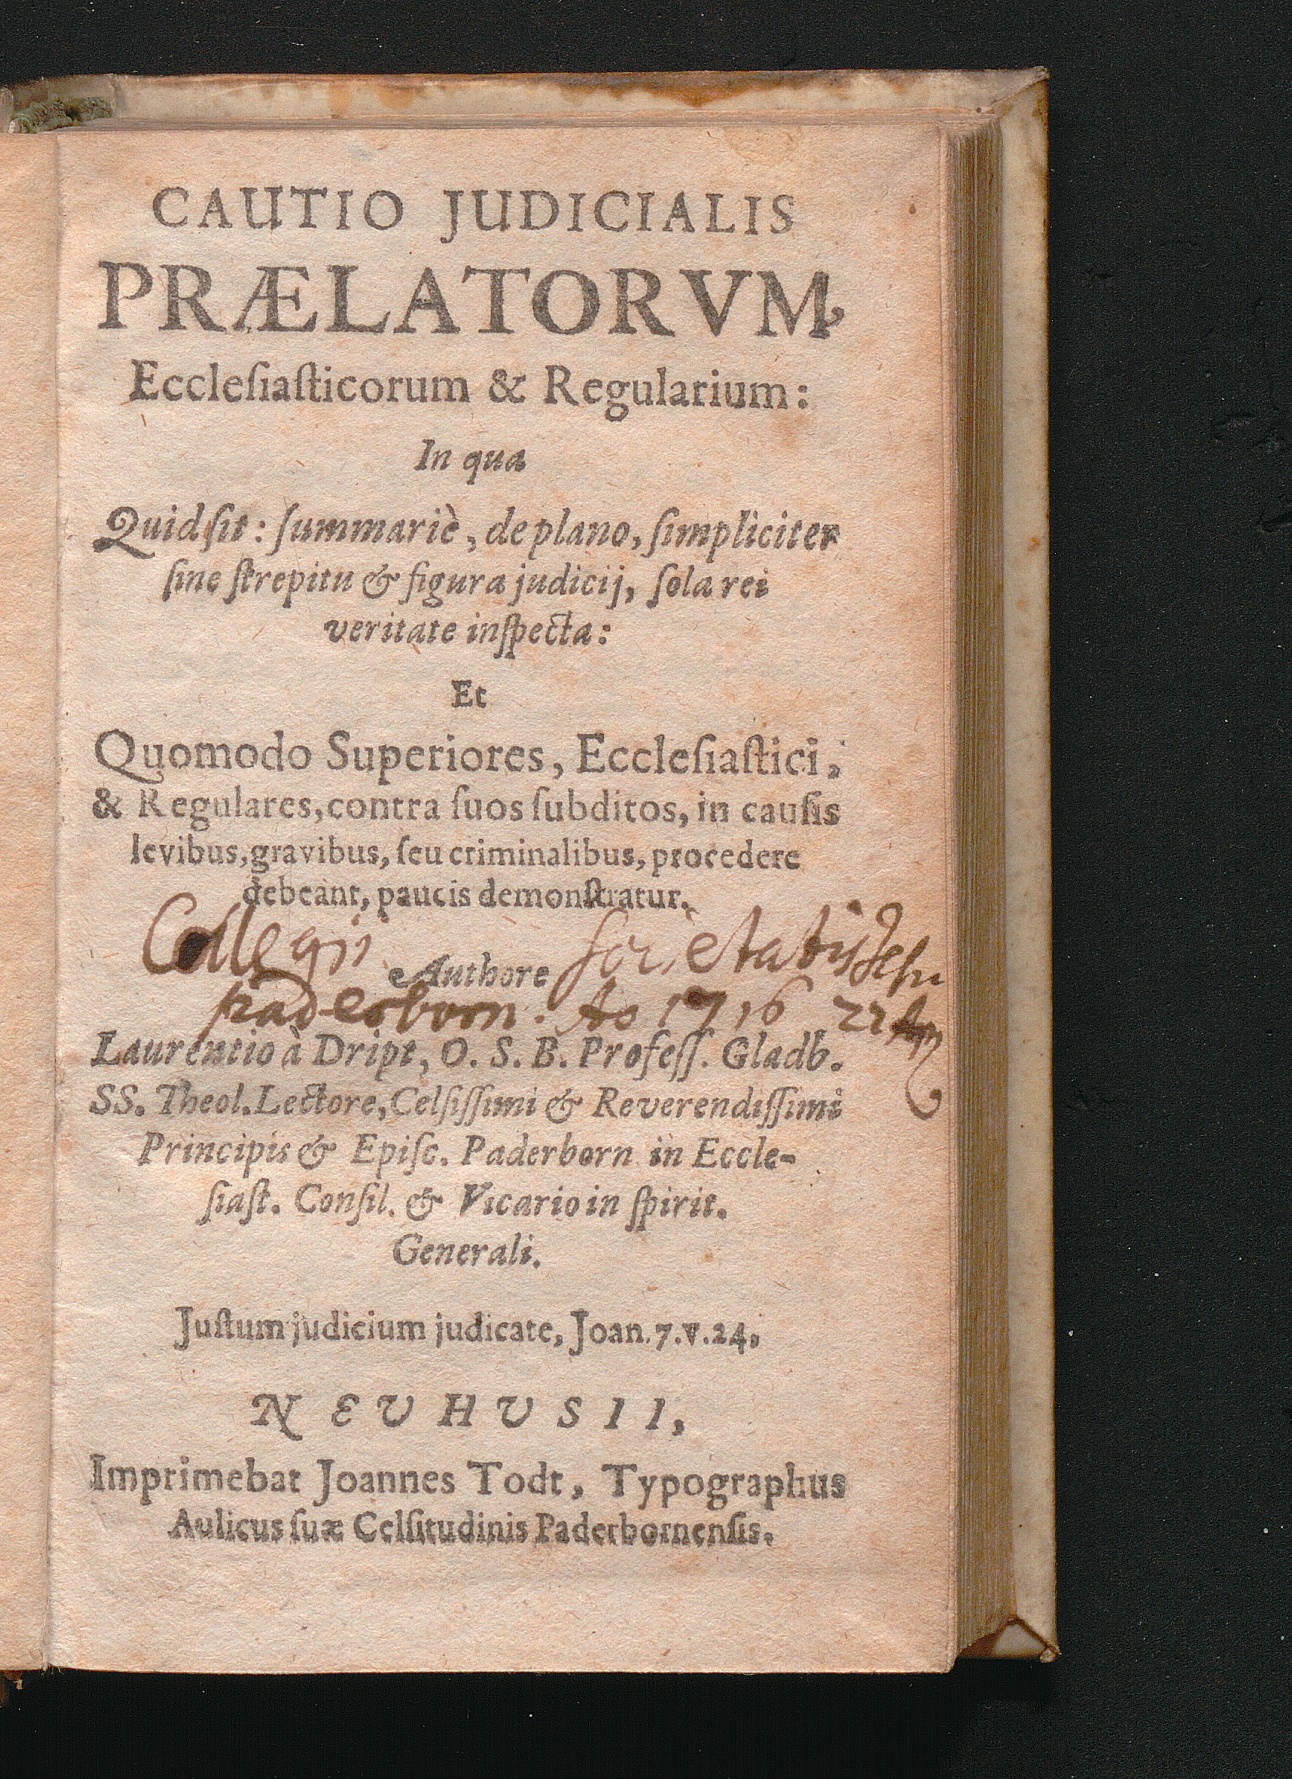 CAUTIO JUDICIALIS
PRÆLATORVM
Eccleſiaſticorum & Regularium:
In qua
Quid ſit: ſummariè, de plano, ſimpliciter
ſine ſtrepitu & figura judicij, ſola rei
veritate inſpecta:
Et
Quomodo Superiores, Eccleſiaſtici,
& Regulares, contra ſuos ſubditos, in cauſis
levibus, gravibus, ſeu criminalibus, procedere
debeant, paucis demonſtratur.
Collegii Societatis Jesu
Authore
paderborn. Ao 1716 22
Laurentio à Dript, O. S. B. Profeſſ. Gladb.
SS. Theol. Lectore, Celſiſſimi & Reverendiſſimi
Principis & Epiſc. Paderborn in Eccle-
ſiaſt. Conſil. & Vicario in ſpirit.
Generali.
Juſtum judicium judicate, Joan. 7. v. 24.
NEUHUSII,
Imprimebat Joannes Todt, Typographus
Aulicus ſuæ Celſitudinis Paderbornenſis.